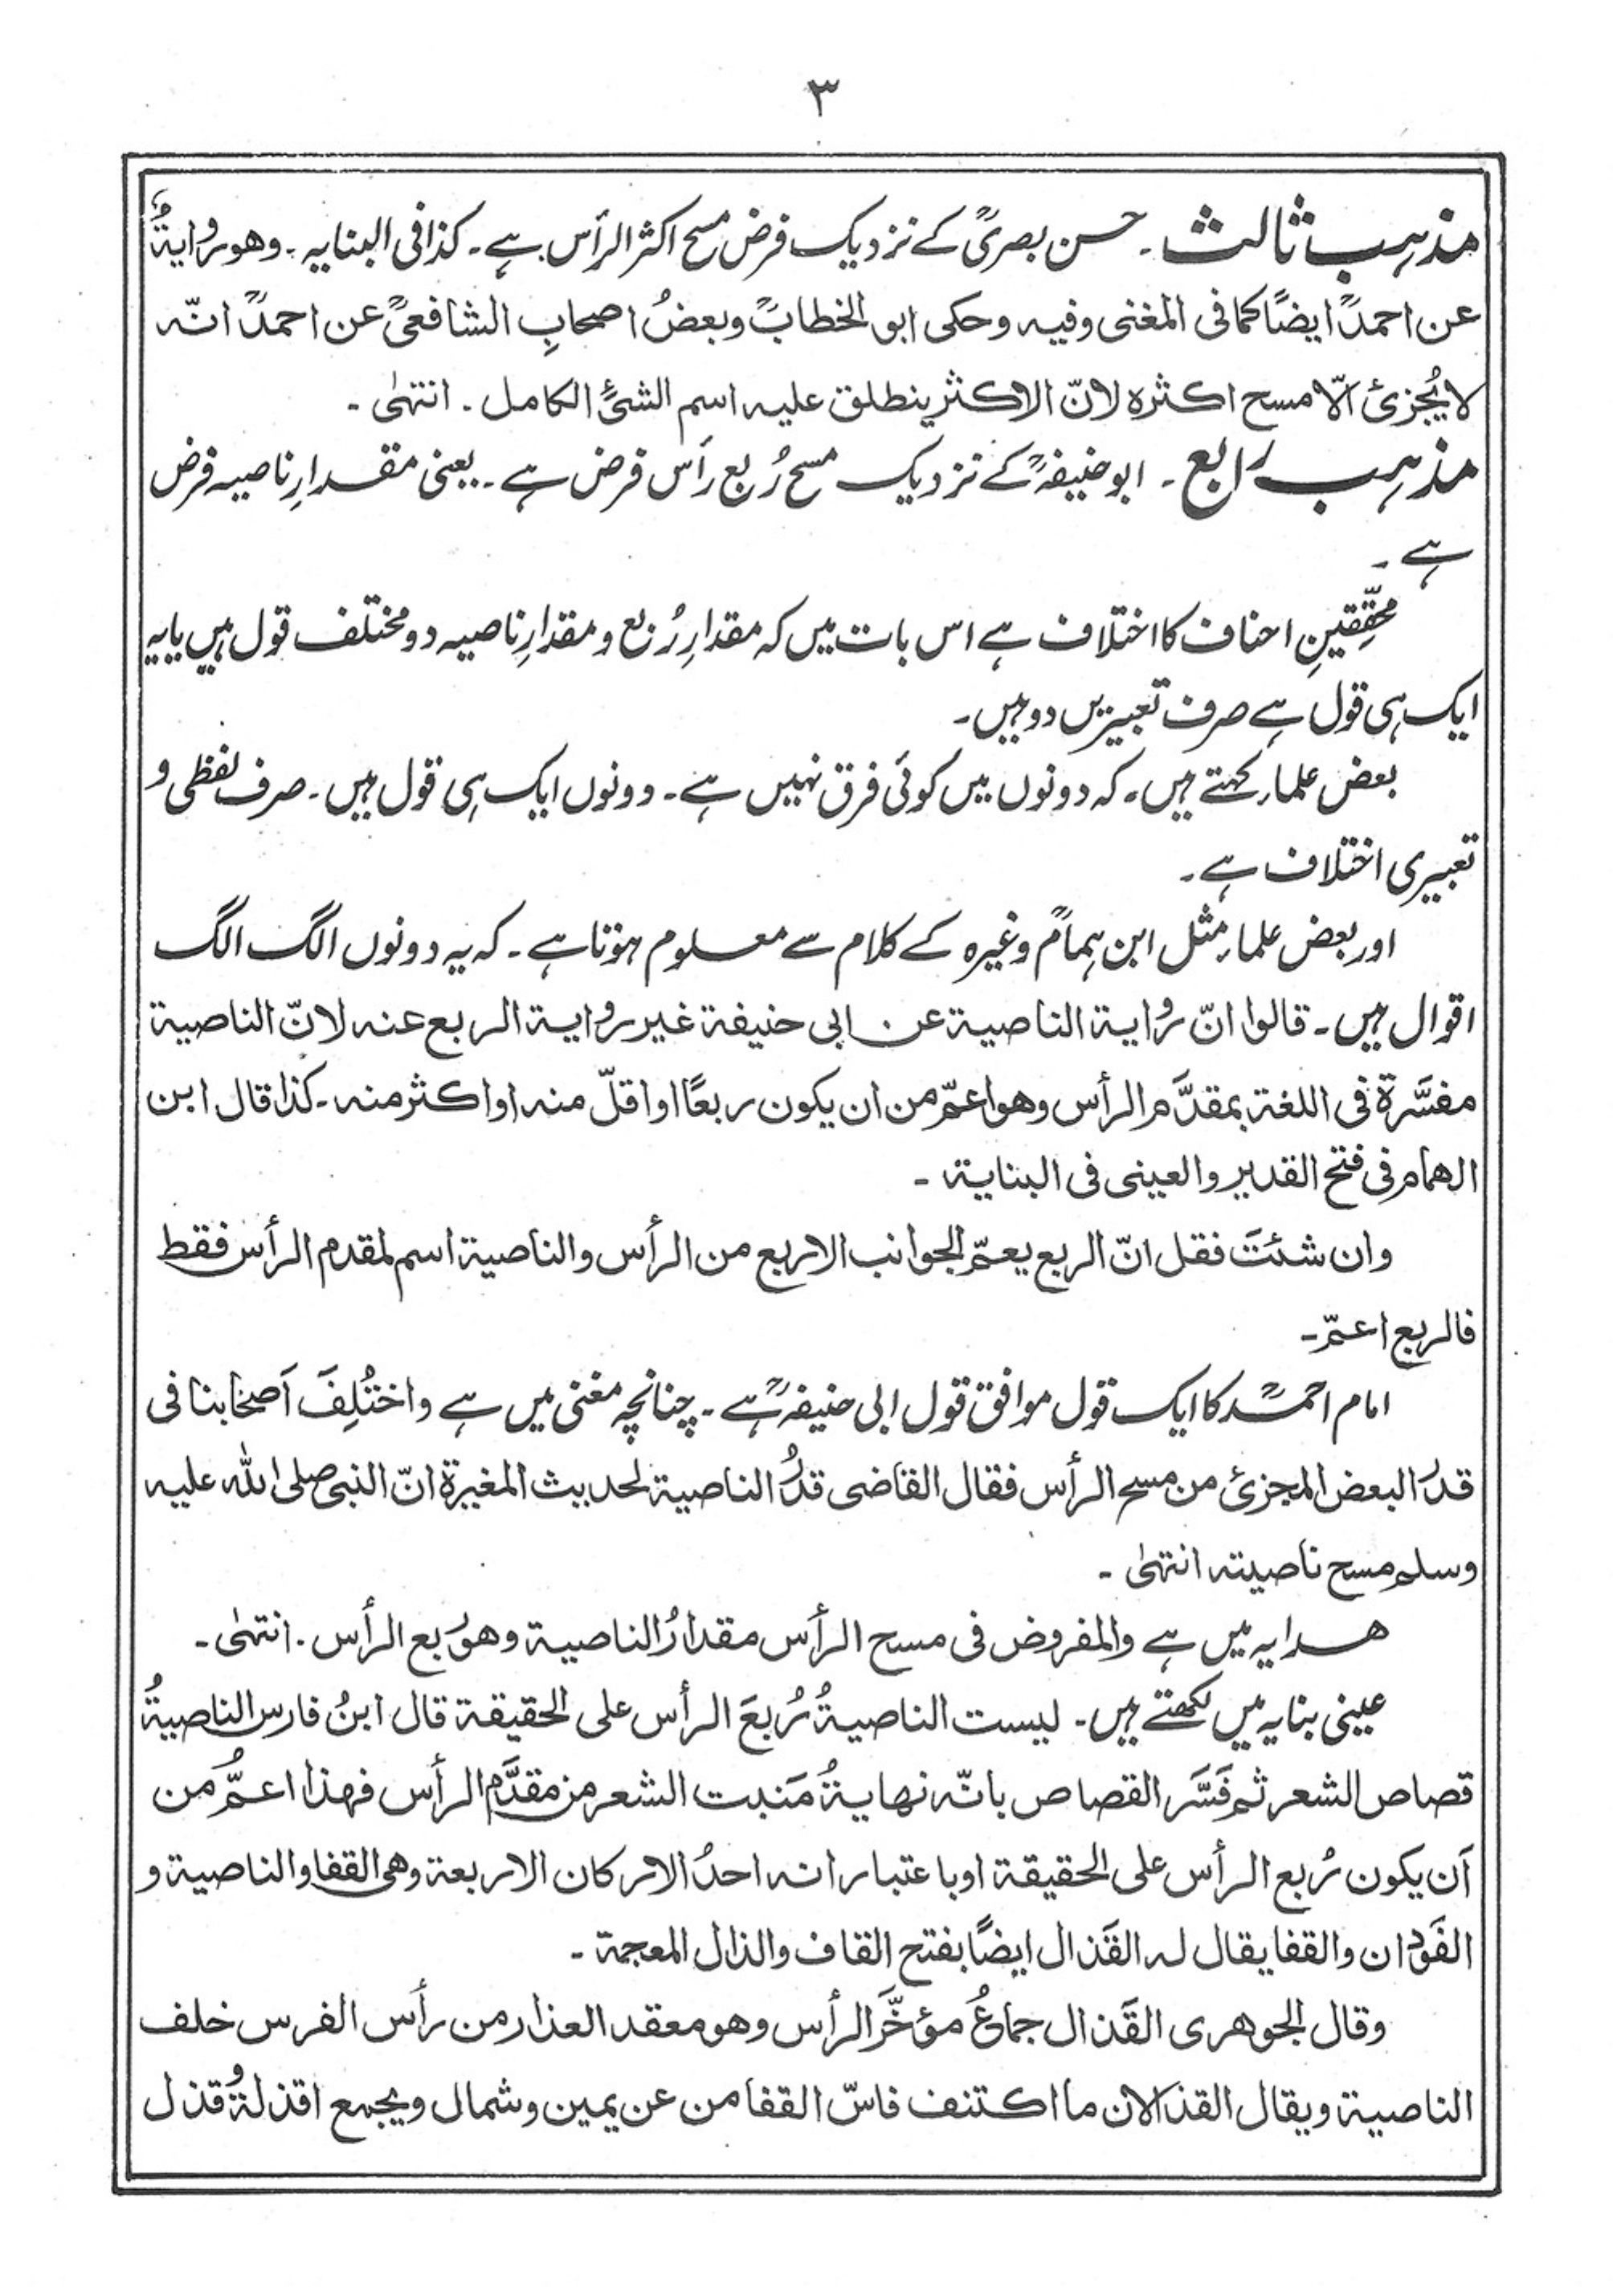 ۳
مذہب ثالث ۔ حسن بصریؒ کے نزدیک فرض مسح اکثر الرأس ہے۔ کذا فی البنایہ ۔ وھو روایۃٌ
عن احمدؒ ایضًا کما فی المغنی وفیہ وحکی ابو الخطابؒ وبعضُ اصحابِ الشافعیؒ عن احمدؒ انّہ
لا یُجزئ الّا مسح اکثرہ لانّ الاکثر ینطلق علیہ اسم الشئ الکامل ۔ انتھٰی ۔
مذہب رابع ۔ ابوحنیفہؒ کے نزدیک مسح رُبع رأس فرض ہے ۔ یعنی مقدارِ ناصیہ فرض
ہے ۔
محقّقینِ احناف کا اختلاف ہے اس بات میں کہ مقدارِ رُبع و مقدارِ ناصیہ دو مختلف قول ہیں یا یہ
ایک ہی قول ہے صرف تعبیریں دو ہیں ۔
بعض علماء کہتے ہیں ۔ کہ دونوں میں کوئی فرق نہیں ہے ۔ دونوں ایک ہی قول ہیں ۔ صرف لفظی و
تعبیری اختلاف ہے ۔
اور بعض علماء مثل ابن ہمامؒ وغیرہ کے کلام سے معلوم ہوتا ہے ۔ کہ یہ دونوں الگ الگ
اقوال ہیں ۔ قالوا انّ روایۃ الناصیۃ عن ابی حنیفۃ غیر روایۃ الربع عنہ لانّ الناصیۃ
مفسَّرۃ فی اللغۃ بمقدَّم الرأس وھو اعمّ من ان یکون ربعًا او اقلّ منہ او اکثر منہ ۔ کذا قال ابن
الھمام فی فتح القدیر والعینی فی البنایۃ ۔
وان شئتَ فقل انّ الربع یعمّ الجوانب الاربع من الرأس والناصیۃ اسم لمقدم الرأس فقط
فالربع اعمّ ۔
امام احمدؒ کا ایک قول موافق قول ابی حنیفہؒ ہے ۔ چنانچہ مغنی میں ہے واختُلِفَ اَصحابنا فی
قدر البعض المجزئ من مسح الرأس فقال القاضی قدرُ الناصیۃ لحدیث المغیرۃ انّ النبی صلی اللہ علیہ
وسلم مسح ناصیتہ انتھٰی ۔
ھدایہ میں ہے والمفروض فی مسح الرأس مقدارُ الناصیۃ وھو رُبع الرأس ۔ انتھٰی ۔
عینی بنایہ میں لکھتے ہیں ۔ لیست الناصیۃُ رُبعَ الرأس علی الحقیقۃ قال ابنُ فارس الناصیۃُ
قصاص الشعر ثم فَسَّرَ القصاص بانّہ نھایۃُ مَنبت الشعر من مقدَّم الرأس فھذا اعمُّ من
اَن یکون رُبع الرأس علی الحقیقۃ او باعتبار انہ احدُ الارکان الاربعۃ وھی القفا والناصیۃ و
الفَودان والقفا یقال لہ القَذال ایضًا بفتح القاف والذال المعجمۃ ۔
وقال الجوھری القَذال جماعُ مؤخَّر الرأس وھو معقد العذار من رأس الفرس خلف
الناصیۃ ویقال القذالان ما اکتنف فاسّ القفا من عن یمین وشمال ویجمع اقذلۃُ و قذل